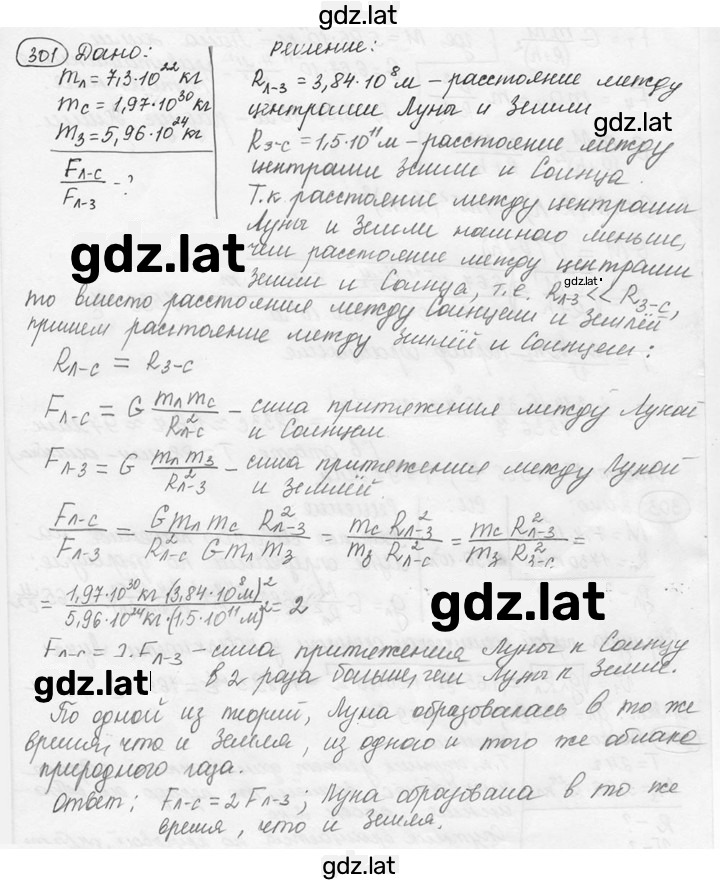 gdz.lat
301 Дано:
mл = 7,3·10²² кг
mс = 1,97·10³⁰ кг
mз = 5,96·10²⁴ кг
Fл-с / Fл-з - ?
решение:
Rл-з = 3,84·10⁸ м – расстояние между
центрами Луны и Земли
gdz.lat
Rз-с = 1,5·10¹¹ м – расстояние между
центрами Земли и Солнца.
Т.к расстояние между центрами
Луны и Земли намного меньше,
gdz.lat
чем расстояние между центрами
Земли и Солнца, т.е. Rл-з << Rз-с,
gdz.lat
то вместо расстояния между Солнцем и Землёй
примем расстояние между Землёй и Солнцем:
Rл-с = Rз-с
Fл-с = G mл mс / R²л-с – сила притяжения между Луной
и Солнцем
Fл-з = G mл mз / R²л-з – сила притяжения между Луной
и Землёй
Fл-с / Fл-з = G mл mс R²л-з / R²л-с G mл mз = mс R²л-з / mз R²л-с = mс R²л-з / mз R²з-с =
= 1,97·10³⁰ кг·(3,84·10⁸ м)² / 5,96·10²⁴ кг·(1,5·10¹¹ м)² = 2
gdz.lat
Fл-с = 2·Fл-з – сила притяжения Луны к Солнцу
в 2 раза больше, чем Луны к Земле.
gdz.lat
По одной из теорий, Луна образовалась в то же
время, что и Земля, из одного и того же облака
природного газа.
Ответ: Fл-с = 2Fл-з; Луна образована в то же
время, что и Земля.
gdz.lat